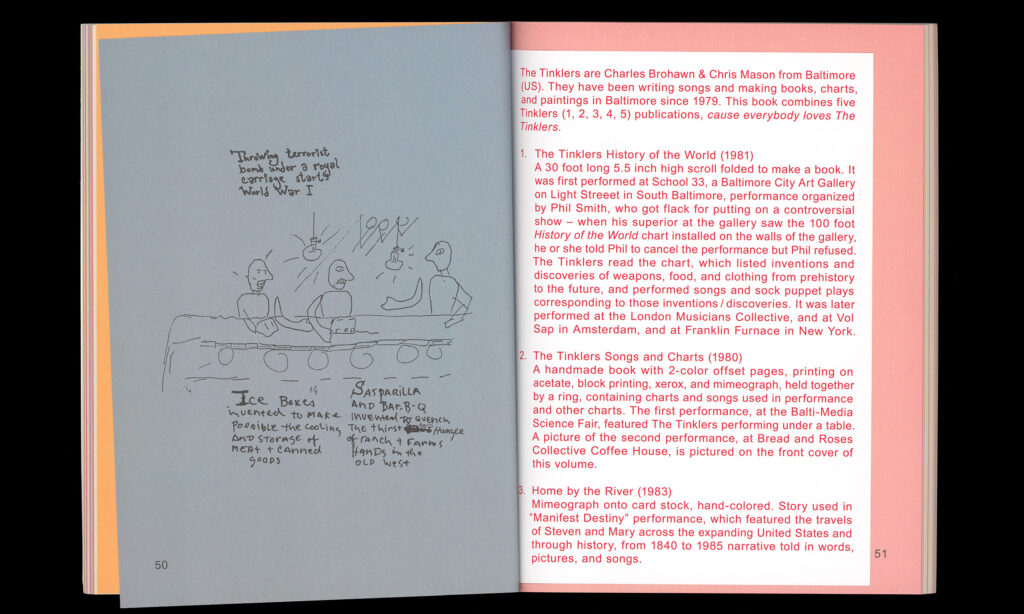 Throwing terrorist
bomb under a royal
carriage starts
World War I
Ice Boxes
invented to make
possible the cooling
and storage of
meat + canned
goods
Sasparilla
and Bar-B-Q
invented to quench
the thirst and hunger
of ranch + farms
hands in the
old west
50
The Tinklers are Charles Brohawn & Chris Mason from Baltimore
(US). They have been writing songs and making books, charts,
and paintings in Baltimore since 1979. This book combines five
Tinklers (1, 2, 3, 4, 5) publications, cause everybody loves The
Tinklers.
1. The Tinklers History of the World (1981)
A 30 foot long 5.5 inch high scroll folded to make a book. It
was first performed at School 33, a Baltimore City Art Gallery
on Light Streeet in South Baltimore, performance organized
by Phil Smith, who got flack for putting on a controversial
show – when his superior at the gallery saw the 100 foot
History of the World chart installed on the walls of the gallery,
he or she told Phil to cancel the performance but Phil refused.
The Tinklers read the chart, which listed inventions and
discoveries of weapons, food, and clothing from prehistory
to the future, and performed songs and sock puppet plays
corresponding to those inventions / discoveries. It was later
performed at the London Musicians Collective, and at Vol
Sap in Amsterdam, and at Franklin Furnace in New York.
2. The Tinklers Songs and Charts (1980)
A handmade book with 2-color offset pages, printing on
acetate, block printing, xerox, and mimeograph, held together
by a ring, containing charts and songs used in performance
and other charts. The first performance, at the Balti-Media
Science Fair, featured The Tinklers performing under a table.
A picture of the second performance, at Bread and Roses
Collective Coffee House, is pictured on the front cover of
this volume.
3. Home by the River (1983)
Mimeograph onto card stock, hand-colored. Story used in
“Manifest Destiny” performance, which featured the travels
of Steven and Mary across the expanding United States and
through history, from 1840 to 1985 narrative told in words,
pictures, and songs.
51